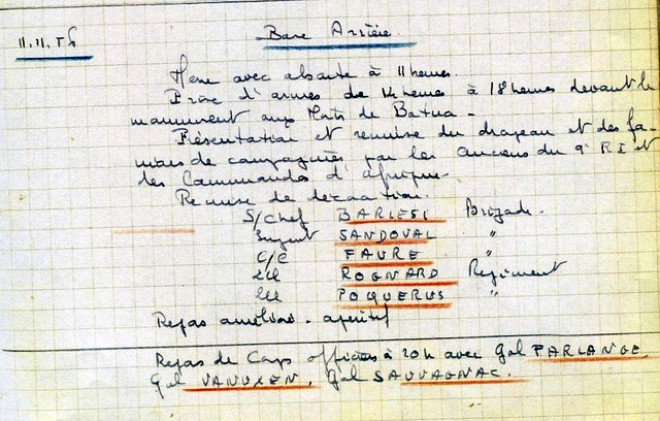 11.11.56 Base Arrière.
Messe avec absoute à 11 heures.
Prise d'armes de 16 heures à 18 heures devant le
monument aux Morts de Batna -
Présentation et remise du drapeau et des fa-
nions de compagnies par les anciens du 9° RI et
des Commandos d'Afrique.
Remise de décoration.
S/Chef BARLESI Brigade.
Sergent SANDOVAL "
C/C FAURE "
2cl ROGNARD Régiment
2cl POQUERUS "
Repas amélioré - apéritif
Repas de Corps officiers à 20h avec Gal PARLANGE
Gal VANUXEN, Gal SAUVAGNAC.